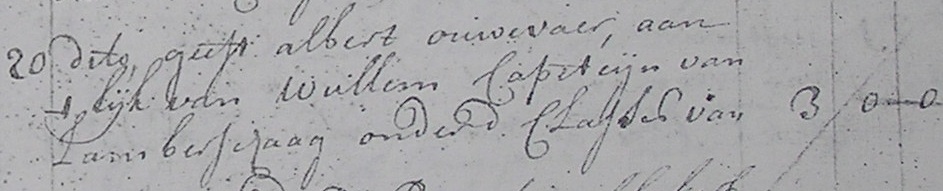 20 dito, geeft albert ouwevaer, aan
t lijk van willem Capeteijn van
Lamberschaag onder d Classes van 3 / 0—0